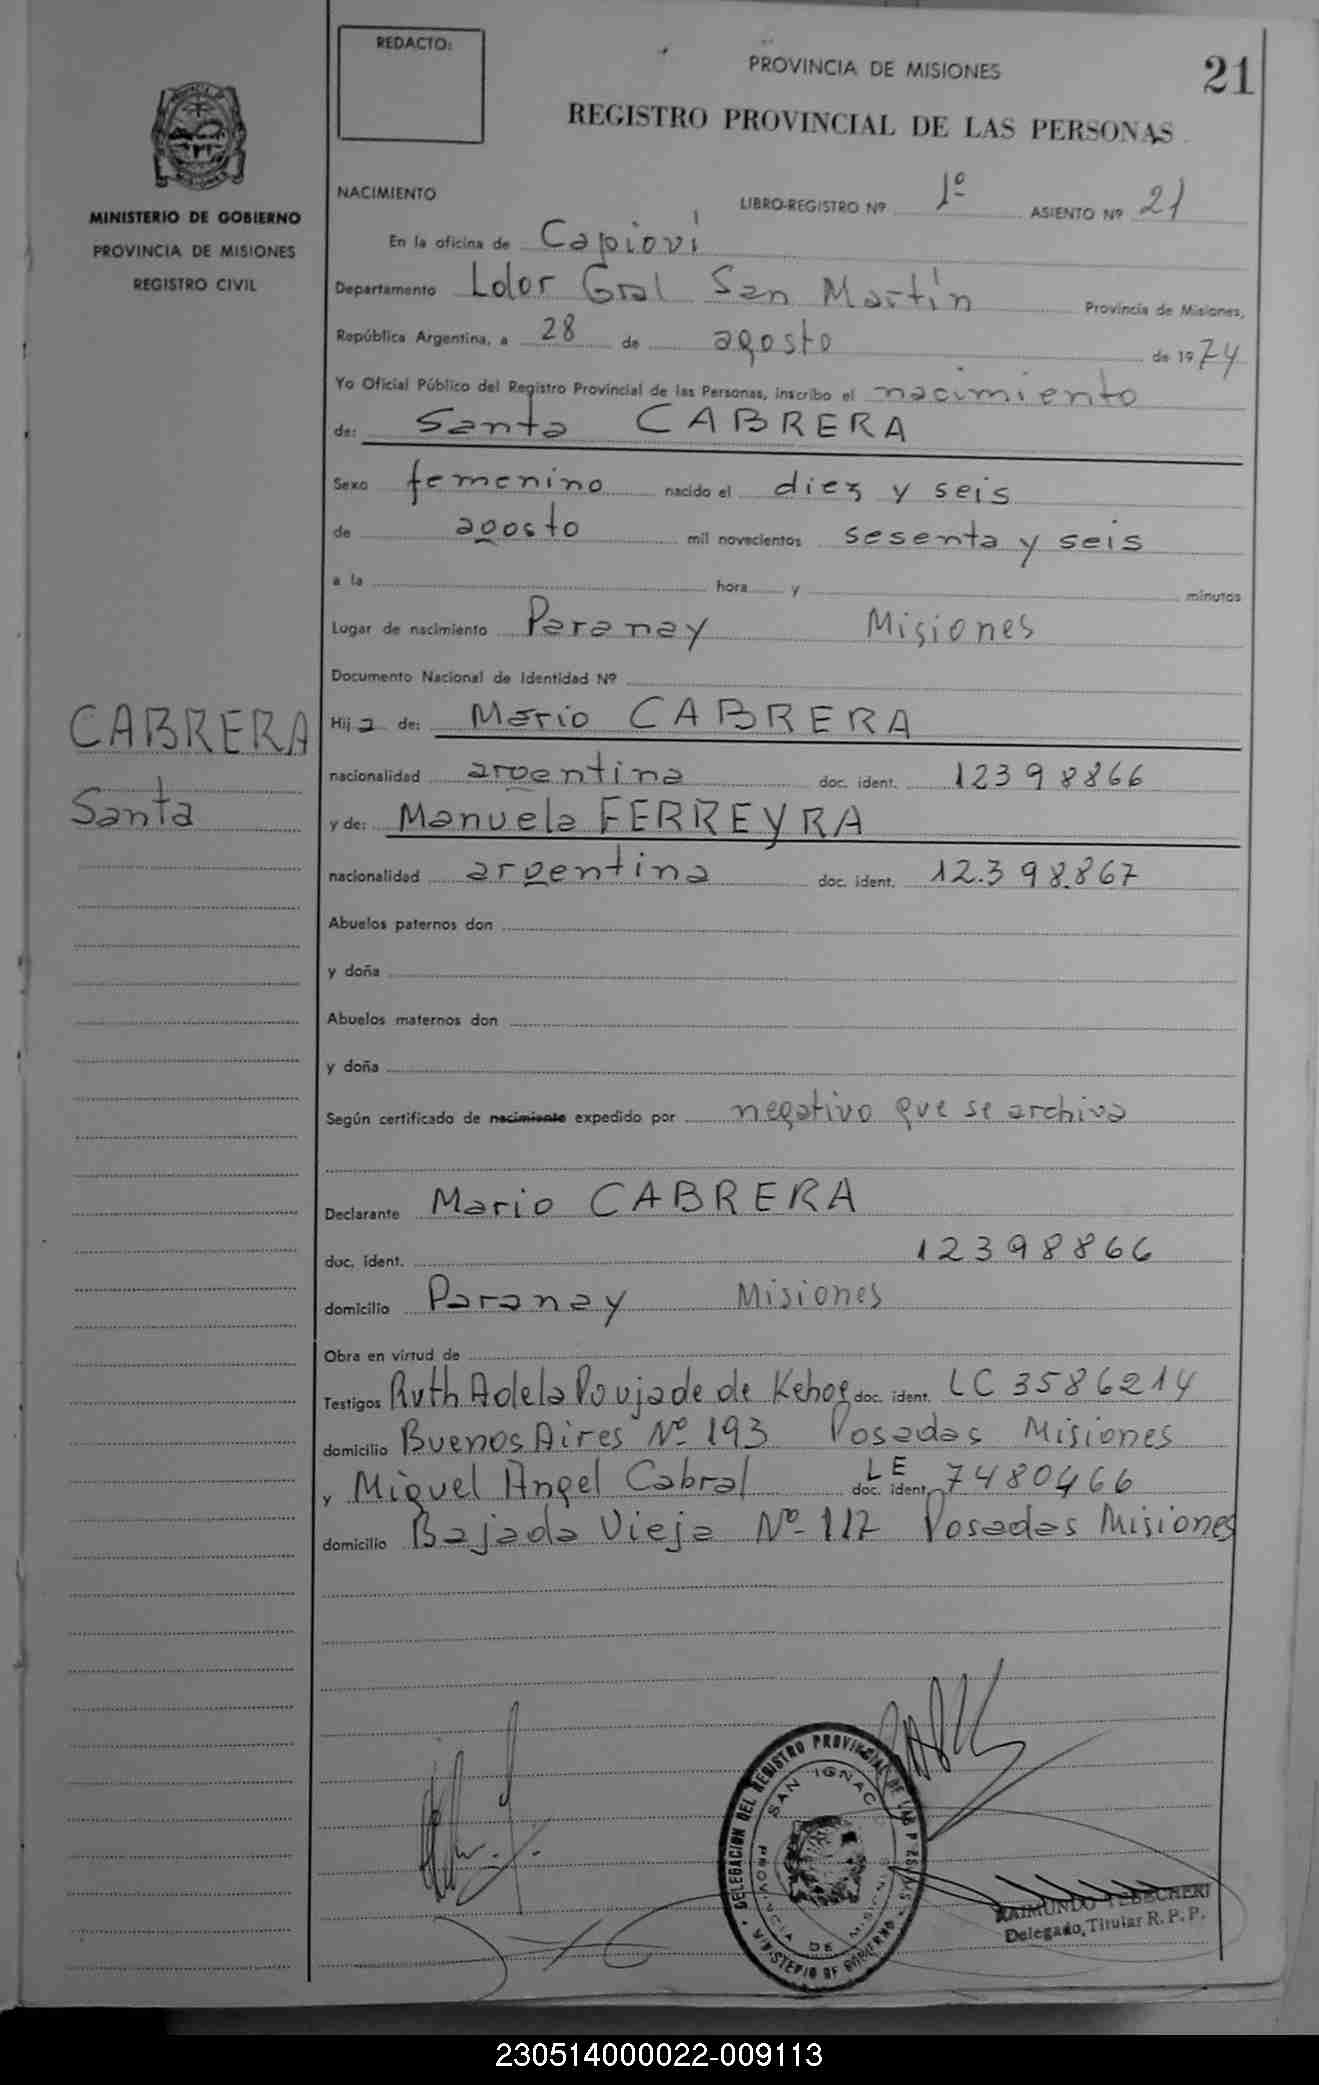 REDACTO:
PROVINCIA DE MISIONES
21
REGISTRO PROVINCIAL DE LAS PERSONAS
MINISTERIO DE GOBIERNO
PROVINCIA DE MISIONES
REGISTRO CIVIL
NACIMIENTO
LIBRO-REGISTRO Nº 1º ASIENTO Nº 21
En la oficina de Capioví
Departamento Ldor Gral San Martín Provincia de Misiones,
República Argentina, a 28 de agosto de 1974
Yo Oficial Público del Registro Provincial de las Personas, inscribo el nacimiento
de: Santa CABRERA
Sexo femenino nacido el diez y seis
de agosto mil novecientos sesenta y seis
a la hora y minutos
Lugar de nacimiento Paranay Misiones
Documento Nacional de Identidad Nº
CABRERA
Santa
Hija de: Mario CABRERA
nacionalidad argentina doc. ident. 12398866
y de: Manuela FERREYRA
nacionalidad argentina doc. ident. 12.398.867
Abuelos paternos don
y doña
Abuelos maternos don
y doña
Según certificado de nacimiento expedido por negativo que se archiva
Declarante Mario CABRERA
doc. ident. 12398866
domicilio Paranay Misiones
Obra en virtud de
Testigos Ruth Adela Poujade de Kehoe doc. ident. LC 3586214
domicilio Buenos Aires Nº 193 Posadas Misiones
y Miguel Angel Cabral doc. ident. LE 7480466
domicilio Bajada Vieja Nº 117 Posadas Misiones
DELEGACION DEL REGISTRO PROVINCIAL DE LAS PERSONAS
SAN IGNACIO
PROVINCIA DE MISIONES
MINISTERIO DE GOBIERNO
RAIMUNDO
Delegado, Titular R. P. P.
230514000022-009113